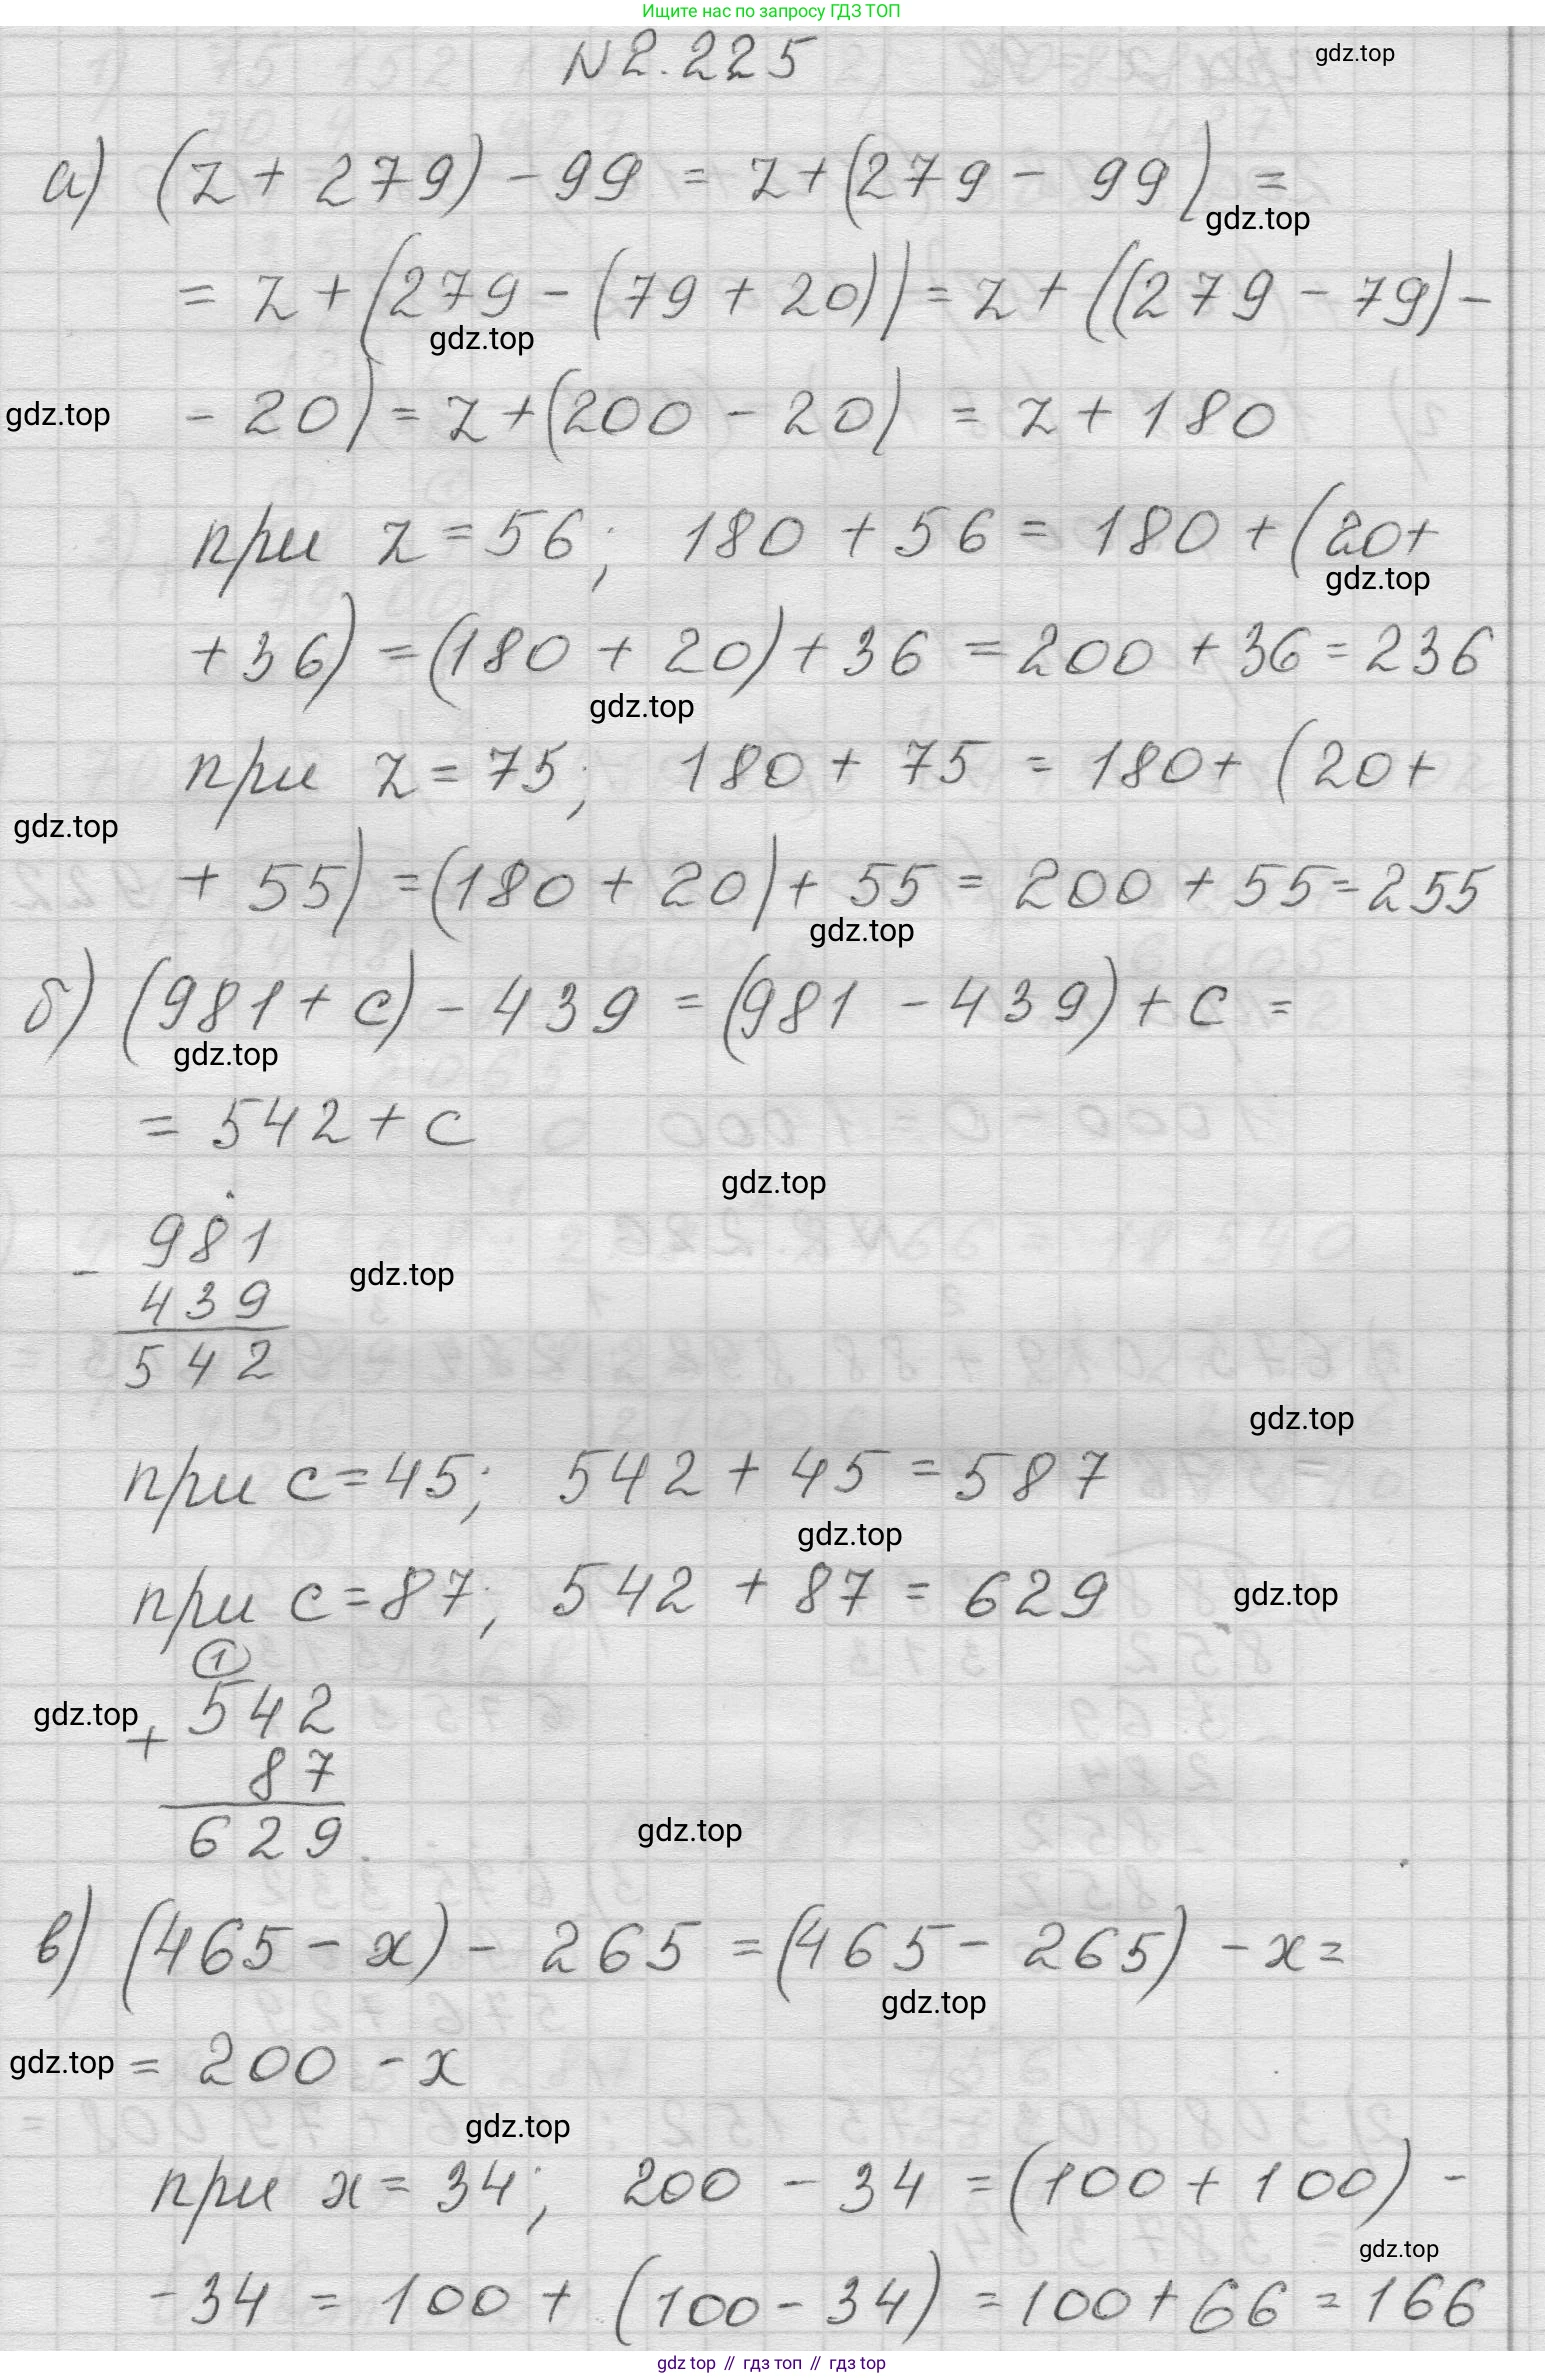 Ищите нас по запросу ГДЗ ТОП
N 2.225
gdz.top
а) (z + 279) - 99 = z + (279 - 99) =
gdz.top
= z + (279 - (79 + 20)) = z + ((279 - 79) -
gdz.top
gdz.top
- 20) = z + (200 - 20) = z + 180
при z = 56; 180 + 56 = 180 + (20+
gdz.top
+36) = (180 + 20) + 36 = 200 + 36 = 236
gdz.top
при z = 75; 180 + 75 = 180 + (20+
gdz.top
+ 55) = (180 + 20) + 55 = 200 + 55 = 255
gdz.top
б) (981 + c) - 439 = (981 - 439) + c =
gdz.top
= 542 + c
gdz.top
981
-
gdz.top
439
542
gdz.top
при c = 45; 542 + 45 = 587
gdz.top
при c = 87; 542 + 87 = 629
gdz.top
1
542
gdz.top
+
87
629
gdz.top
в) (465 - x) - 265 = (465 - 265) - x =
gdz.top
gdz.top
= 200 - x
gdz.top
при x = 34; 200 - 34 = (100 + 100) -
gdz.top
- 34 = 100 + (100 - 34) = 100 + 66 = 166
gdz top // гдз топ // гдз top